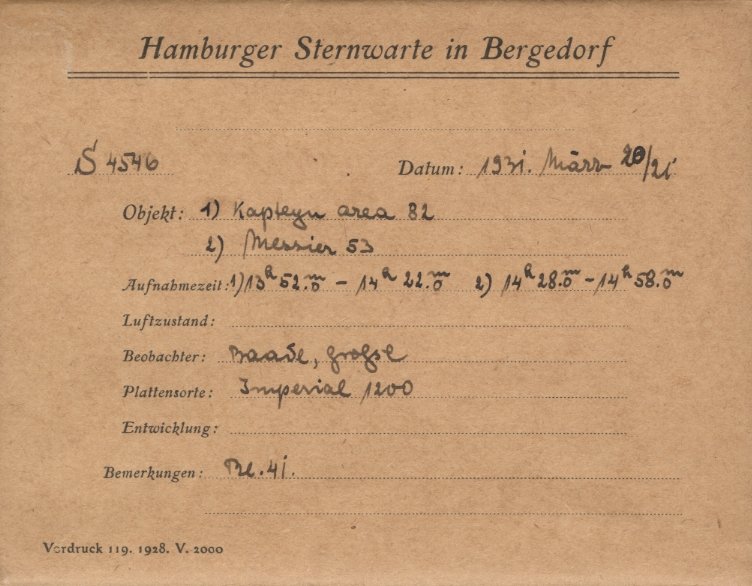 Hamburger Sternwarte in Bergedorf
S 4546 Datum: 1931. März 20/21
Objekt: 1) Kapteyn area 82
2) Messier 53
Aufnahmezeit: 1) 13h 52.m0 - 14h 22.m0 2) 14h 28.m0 - 14h 58.m0
Luftzustand:
Beobachter: Baade, Große
Plattensorte: Imperial 1200
Entwicklung:
Bemerkungen: Bl. 41.
Vordruck 119. 1928. V. 2000